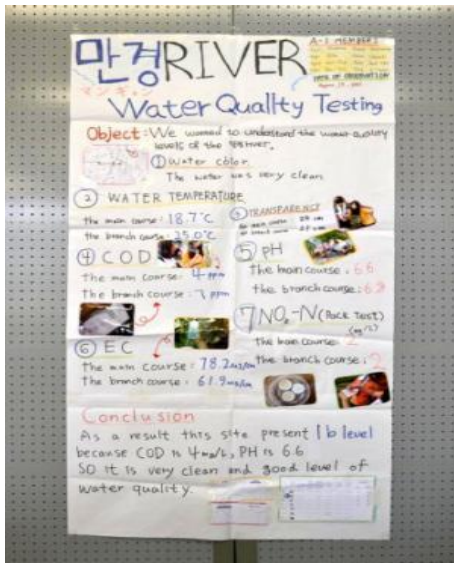 만경RIVER
A-1 MEMBERS
マンギョン
DATE OF OBSERVATION
Water Quality Testing
Object: We wanted to understand the water quality
levels of the 만경river.
① Water color
The water was very clean
② WATER TEMPERATURE
the main course: 18.7°C
the branch course: 25.0°C
③ TRANSPARENCY
④ COD
the main course: 4 ppm
the branch course: 7 ppm
⑤ PH
the main course: 6.6
the branch course: 6.8
⑥ EC
the main course: 78.2ms/m
the branch course: 61.9ms/m
⑦ NO₃-N (Pack Test)
(mg/L)
the main course: 2
the branch course: 2
Conclusion
As a result this site present 1b level
because COD is 4mg/L, PH is 6.6
SO it is very clean and good level of
water quality.